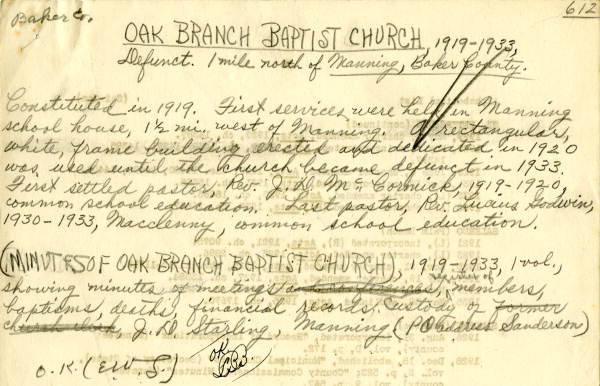 612
Baker Co.
OAK BRANCH BAPTIST CHURCH, 1919-1933,
Defunct. 1 mile north of Manning, Baker County.
Constituted in 1919. First services were held in Manning
school house, 1½ mi. west of Manning. A rectangular,
white, frame building erected and dedicated in 1920
was used until the church became defunct in 1933.
First settled pastor, Rev. J. D. McCormick, 1919-1920,
common school education. Last pastor, Rev. Godwin,
1930-1933, Macclenny, common school education.
(MINUTES OF OAK BRANCH BAPTIST CHURCH), 1919-1933, 1 vol.,
showing minutes of meetings and conferences, register of members,
baptisms, deaths, financial records. Custody of former
church clerk, J. D. Starling, Manning (P.O. address Sanderson)
O.K. (E.W.S.)
OK